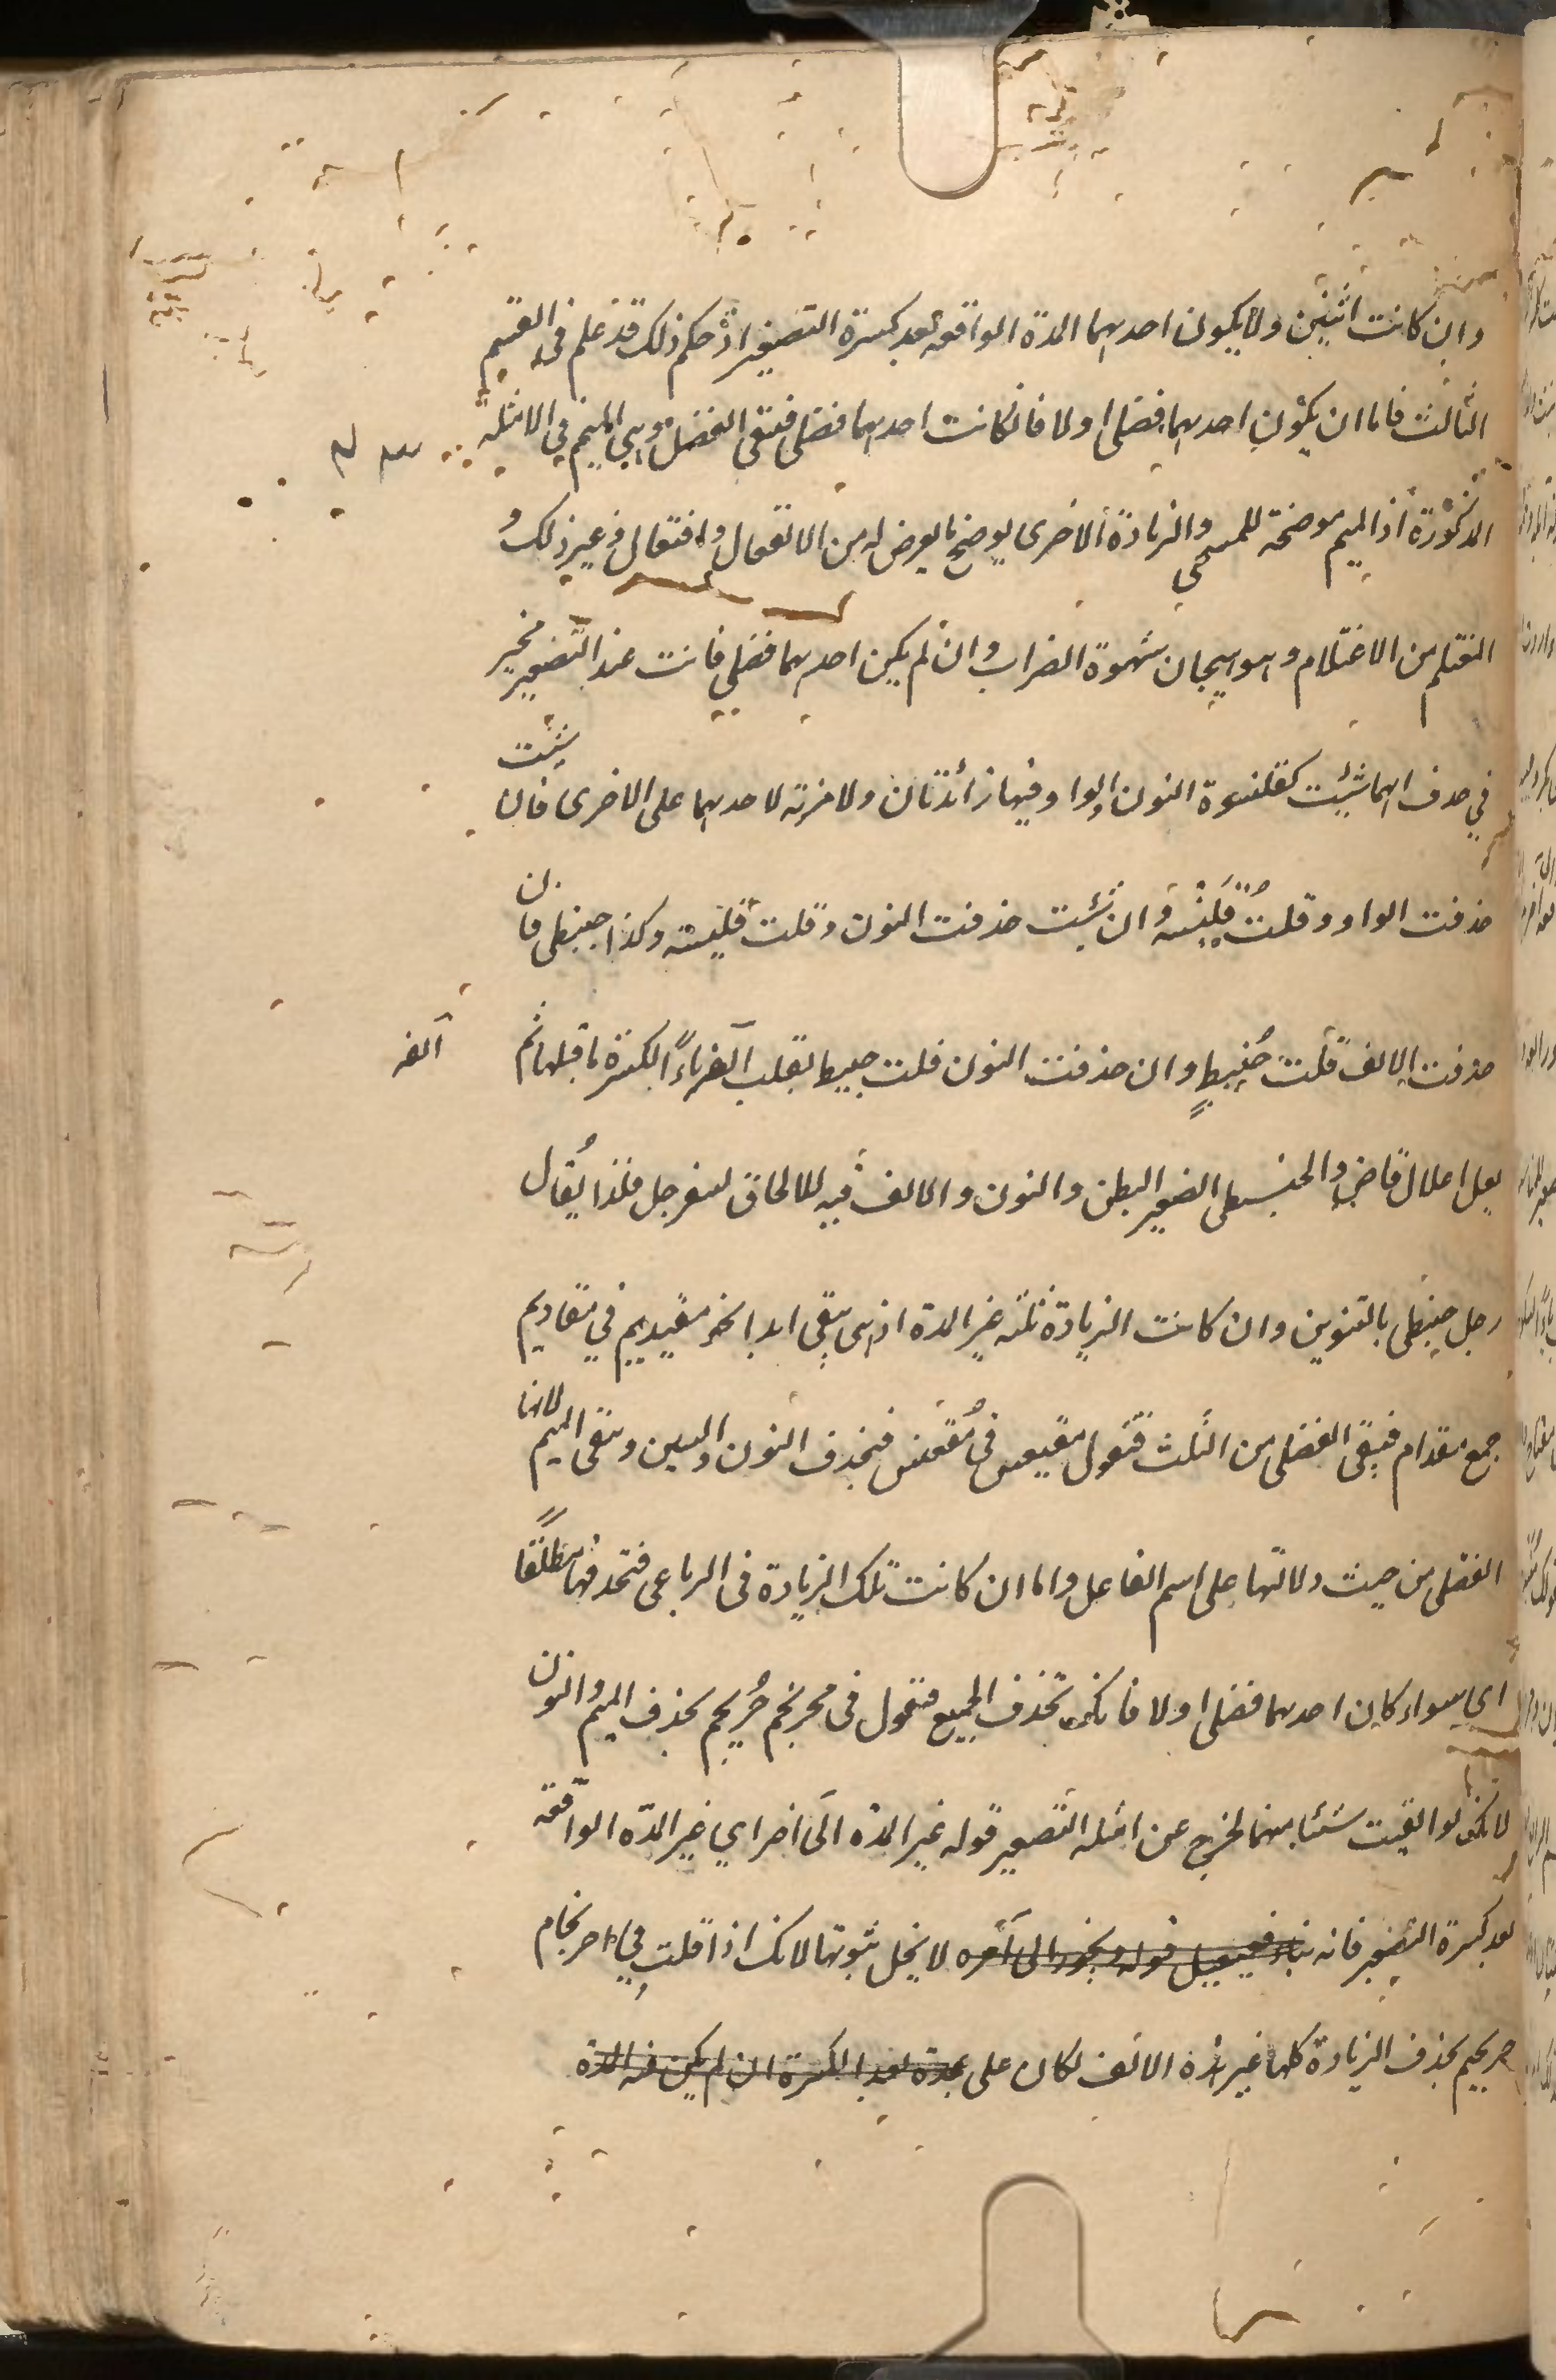 وان كانت اثنين ولا يكون احديهما المدة الواقعة بعد كسرة التصغير اذ حكم ذلك قد علم في القسم
الثالث فاما ان يكون احديهما فضلى اولا فان كانت احديهما فضلى فتبقى الفضلى وهي الميم في الامثلة
المذكورة اذ الميم موضحة للمسمى والزيادة الاخرى يوضح ما يعرض له من الانفعال وافتعال وغير ذلك و
المغتلم من الاغتلام وهو هيجان شهوة الضراب وان لم يكن احديهما فضلى فانت عند التصغير مخير
في حذف ايهما شئت كقلنسوة النون والواو فيها زائدتان ولا مزية لاحديهما على الاخرى فان شئت
حذفت الواو وقلت قلينسة وان شئت حذفت النون وقلت قليسية وكذا حبنطى فان
حذفت الالف قلت حبينط وان حذفت النون قلت حبيط بقلب الفه ياءً لكسرة ما قبلها ثم
الفه
يعل اعلال قاض والحبنطى الصغير البطن والنون والالف فيه للالحاق لسفرجل فلذا يقال
رجل حبنطى بالتنوين وان كانت الزيادة ثلثة غير المدة اذ هي يبقى ابدا نحو مقيديم في مقاديم
جمع مقدام فيبقى الفضلى من الثلث فتقول مقيعس في مقعنسس فتحذف النون والسين ويبقى الميم لانها
الفضلى من حيث دلالتها على اسم الفاعل واما ان كانت تلك الزيادة في الرباعي فتحذفها مطلقًا
اي سواء كان احديهما فضلى اولا فانك تحذف الجميع فتقول في محرنجم حُريجم بحذف الميم والنون
لانك لو ابقيت شيئا منهما لخرج عن امثلة التصغير قوله غير المدة الى اخر اي غير المدة الواقعة
بعد كسرة التصغير فانه بناء فعيعيل قوله ويجوز الى آخره لا يخل ثبوتها لانك اذا قلت في احرنجام
حريجيم بحذف الزيادة كلها غير مدة الالف لكان على مدة بعد الكسرة ان لم يكن فيه المدة